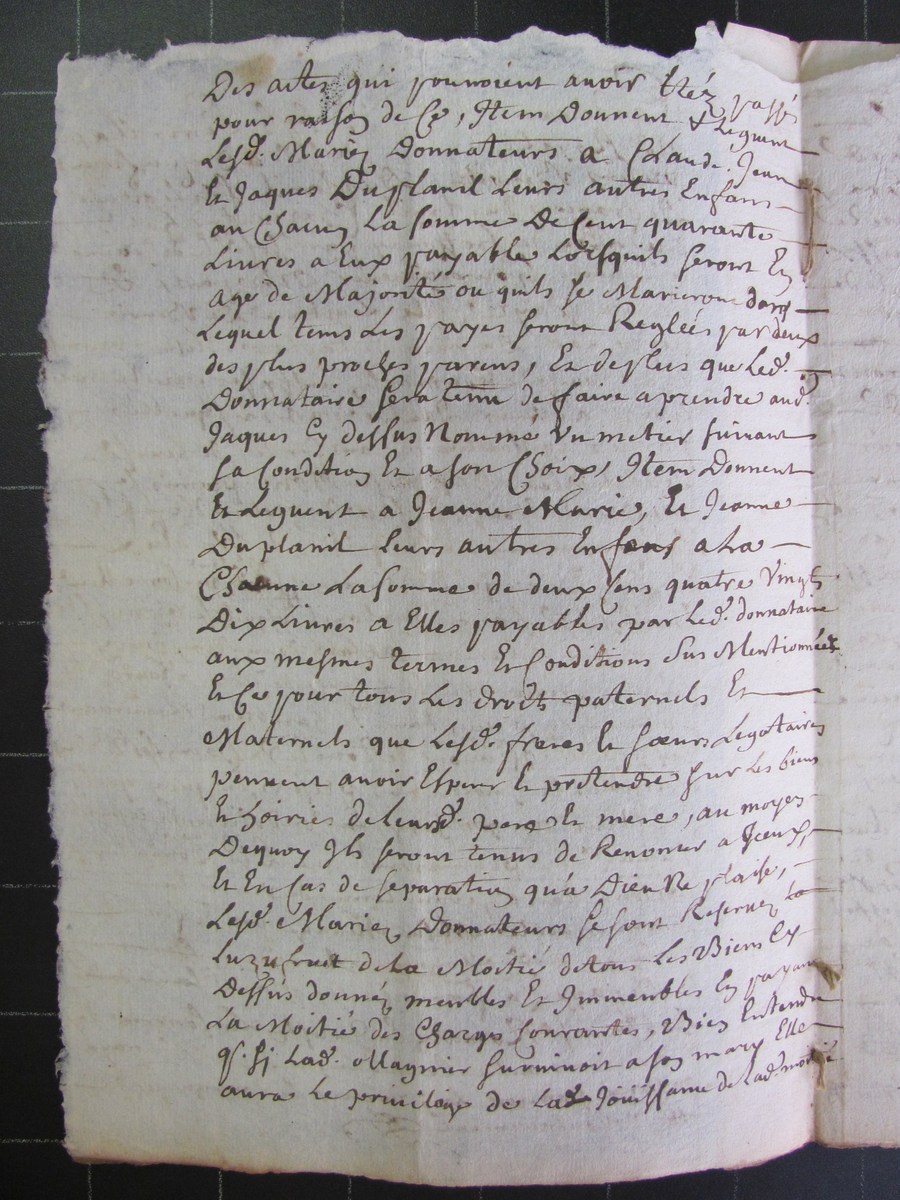 Des actes qui pouvoient avoir ttéz passés
pour raison de Ce, Item Donnent & Leguent
Lesd. Mariez Donnateurs a Claude, Jean
Et Jaques Duplanil Leurs autres Enfans
au Chacun La somme De Cent quarante
Livres a Eux payable Lorsquils seront En
age de Majorité ou quils se Marieront dans
Lequel tems Les payes seront Reglées par deux
des plus proches parens, Et de plus que Led.
Donnataire sera tenu de faire aprendre aud.
Jaques Cy dessus Nommé un metier suivant
sa Condition Et a son Choix, Item Donnent
Et Leguent a Jeanne Marie, Et Jeanne
Duplanil leurs autres Enfans a La
Chacune La somme de deux Cens quatre vingts
Dix Livres a Elles payables par Led. donnataire
aux mesmes termes Et Conditions Sus Mentionnées
Et Ce pour tous Les droits paternels Et
Maternels que Lesd. freres Et sœurs Legataires
peuvent avoir Esperer Et pretendre sur Les biens
Et hoiries de leursd. pere Et mere, au moyen
Dequoy Ils seront tenus de Renoncer a Iceux,
Et En Cas de separation qu'a Dieu Ne plaise,
Lesd. Mariez Donnateurs se sont Reservez
Luzufruit de La Moitié de tous Les Biens Cy
Dessus donnéz meubles Et Immeubles En payant
La Moitié des Charges Courantes, Bien Entendu
q. si Lad. ollagnier survivoit a son mary Elle
aura Le privilège de La Jouissance de Lad. moitié